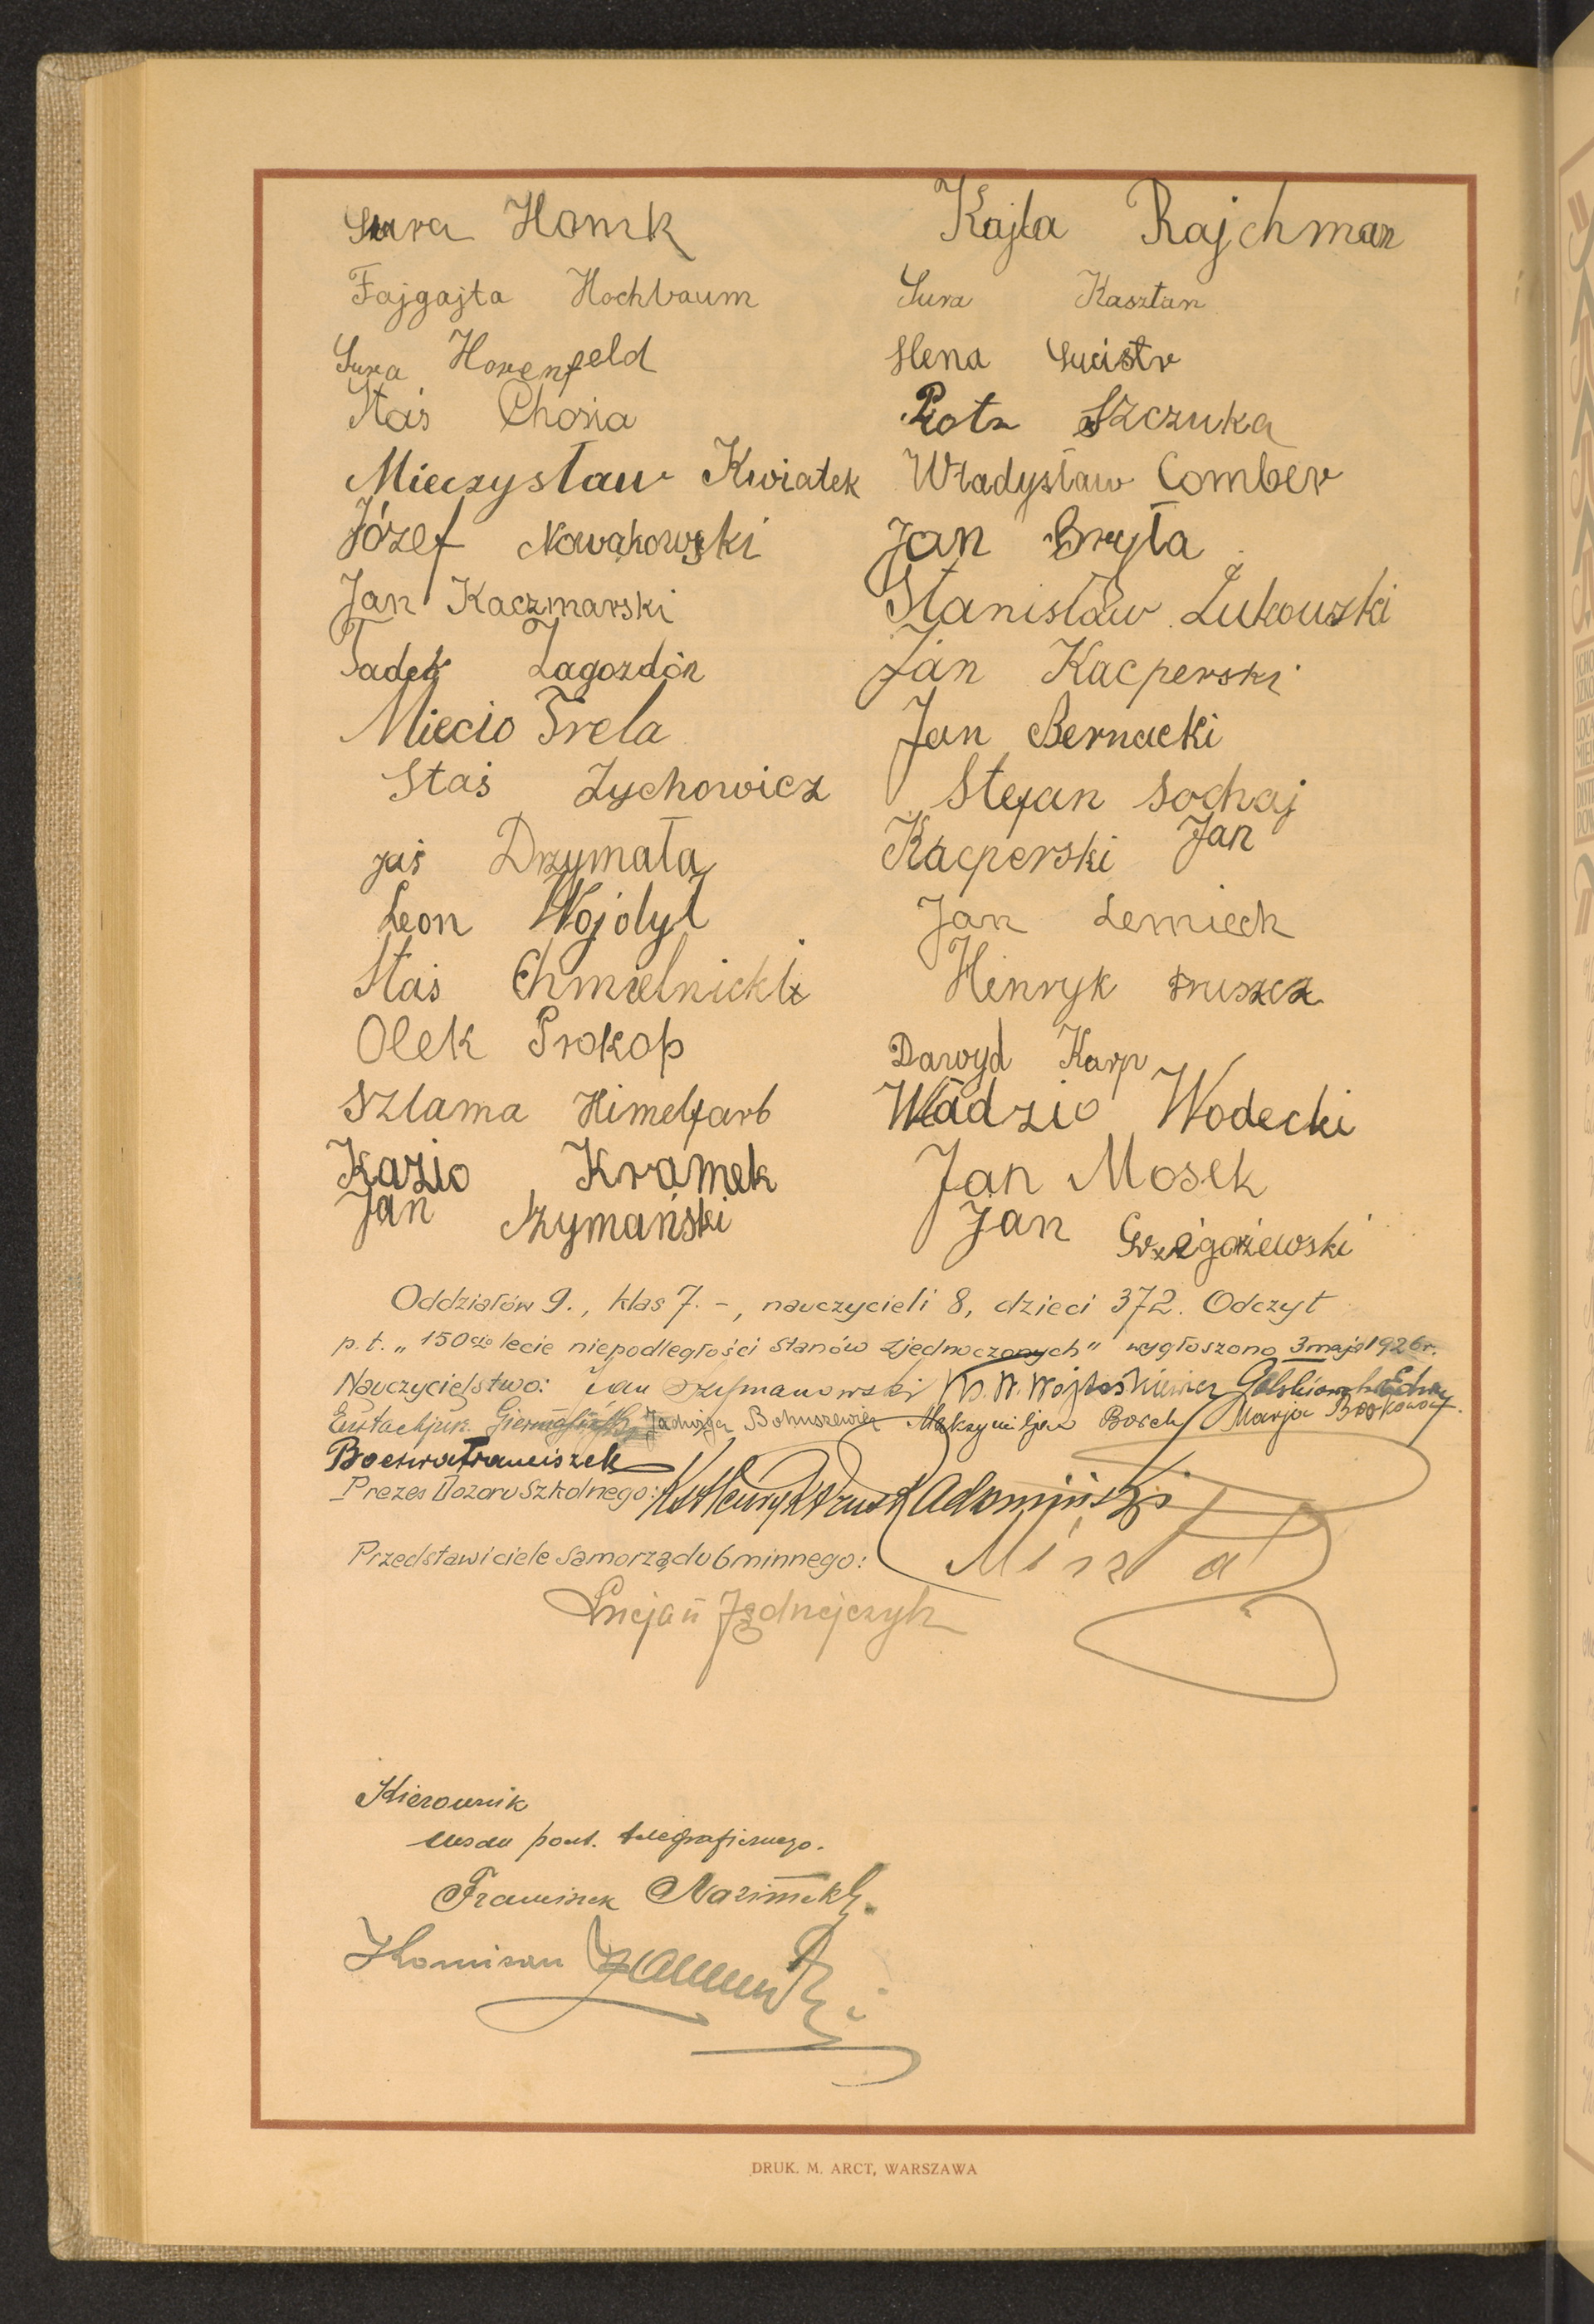 Sura Honik
Fajgajta Hochbaum
Sura Horenfeld
Staś Chosia
Mieczysław Kwiatek
Józef Nowakowski
Jan Kaczmarski
Tadek Zagozdon
Miecio Trela
Staś Zychowicz
jaś Drzymała
Leon Wojdył
Staś Chmielnicki
Olek Prokop
Szlama Himelfarb
Kazio Kramek
Jan Szymański
Kajla Rajchman
Sura Kasztan
Hena
Piotr Szczuka
Władysław Comber
Jan Bryła
Stanisław Żukowski
Jan Kacperski
Jan Bernacki
Stefan Sochaj
Kacperski Jan
Jan Lemiech
Henryk Truszcz
Dawyd Karp
Władzio Wodecki
Jan Mosek
Jan Grzegożewski
Oddziałów 9., klas 7. -, nauczycieli 8, dzieci 372. Odczyt
p. t. „150cio lecie niepodległości Stanów Zjednoczonych" wygłoszono 3 maja 1926 r.
Nauczycielstwo: Jan Szymanowski Ks. W. Wojtaśkiewicz
Eustachjusz Jadwiga Bohuszewicz Maksymiljan Borch Marja Borkowa
Franciszek
Prezes Dozoru Szkolnego: Adamiński
Przedstawiciele Samorządu Gminnego: Minta
Lucjan Jędrzejczyk
Kierownik
urzędu poczt. telegraficznego.
Franciszek
DRUK. M. ARCT, WARSZAWA